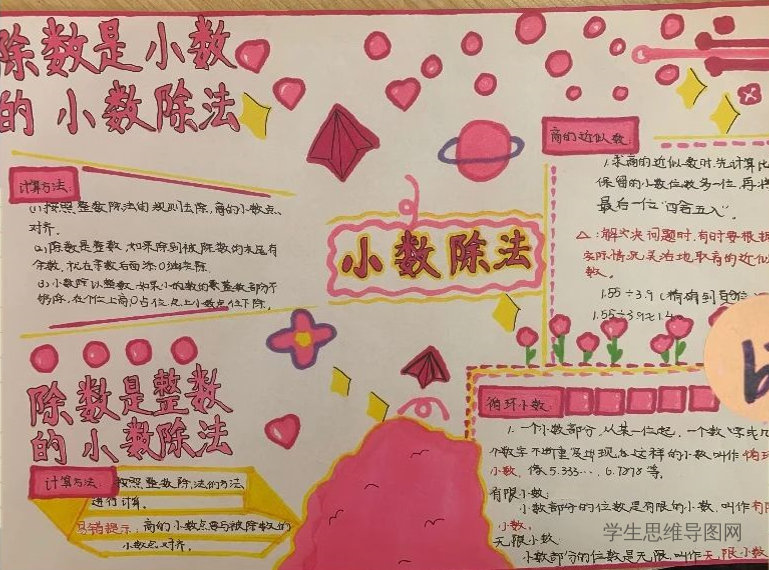 除数是小数
的小数除法
计算方法:
(1)按照整数除法的规则去除,商的小数点
对齐.
(2)除数是整数,如果除到被除数的末尾有
余数,就在余数后面添0继续除.
(3)小数除以整数,如果小数的整数部分不
够除,在个位上商0占位,点上小数点往下除.
除数是整数
的小数除法
计算方法:
按照整数除法的方法
进行计算.
易错提示:商的小数点要与被除数的
小数点对齐.
小数除法
商的近似数:
1.求商的近似数时,先计算比
保留的小数位数多一位,再将
最后一位“四舍五入”.
△:解决问题时,有时要根据
实际情况灵活地取商的近似
数。
1.55÷3.9(精确到百分位
1.55÷3.9≈
循环小数:
1.一个小数部分,从某一位起,一个数字或几
个数字不断重复出现,像这样的小数叫作循环
小数,像5.333…、
等.
有限小数:
小数部分的位数是有限的小数,叫作有限
小数.
无限小数:
小数部分的位数是无限,叫作无限小数
学生思维导图网